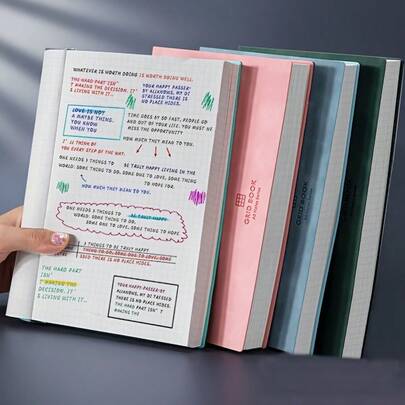 WHATEVER IS WORTH DOING IS WORTH DOING WELL.
THE HARD PART ISN'
T MAKING THE DECISION. IT'
S LIVING WITH IT...
YOUR HAPPY PASSER-
BY ALLKNOWS, MY DI
STRESSED THERE IS
NO PLACE HIDES.
LOVE IS NOT
A MAYBE THING.
YOU KNOW
WHEN YOU
TIME GOES BY SO FAST, PEOPLE GO
AND OUT OF YOUR LIFE. YOU MUST NE
MISS THE OPPORTUNITY
HOW MUCH THEY MEAN TO YOU.
I' LL THINK OF
YOU EVERY STEP OF THE WAY.
ONE NEEDS 3 THINGS TO BE TRULY HAPPY LIVING IN THE
WORLD: SOME THING TO DO, SOME ONE TO LOVE, SOME THING
TO HOPE FOR.
HOW MUCH THEY MEAN TO YOU.
ONE NEEDS 3 THINGS TO BE TRULY HAPPY
WORLD: SOME THING TO DO,
SOME ONE TO LOVE, SOME THING TO HOPE
3 THINGS TO BE TRULY HAPPY
THING TO DO, SOME ONE TO LOVE, SOME
SSED THERE IS NO PLACE HIDES.
THE HARD PART
ISN'
T MAKING THE
DECISION. IT'
S LIVING WITH IT...
YOUR HAPPY PASSER-BY
ALLKNOWS, MY DI STRESSED
THERE IS NO PLACE HIDES.
THE HARD PART ISN' T
MAKING THE
GRID BOOK
GRID BOOK